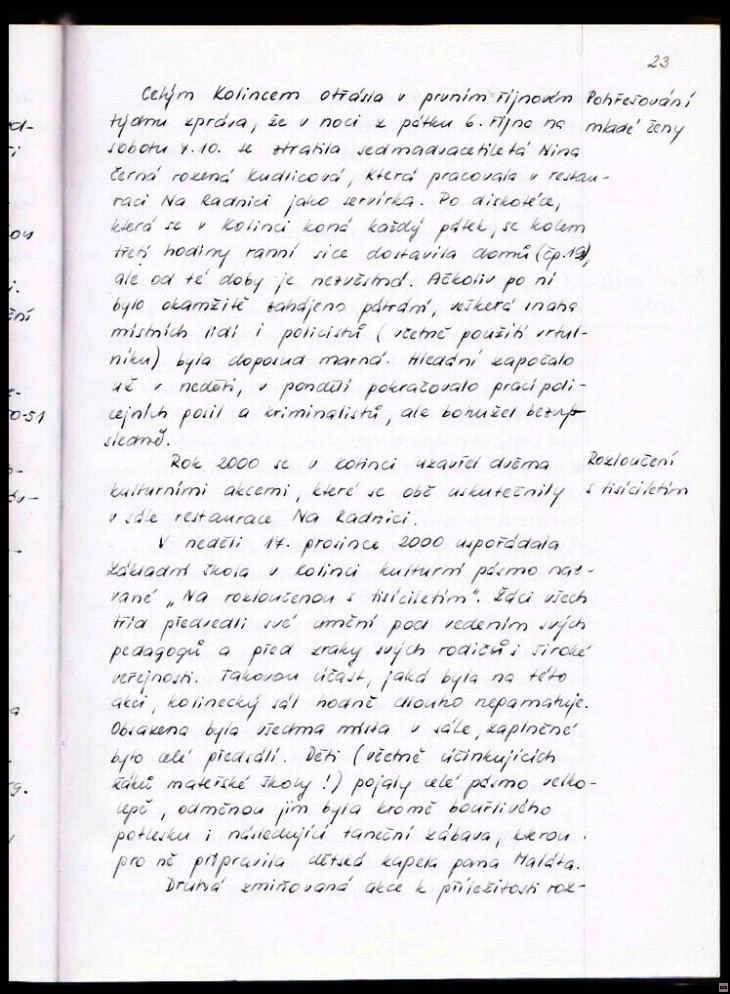 23
Celým Kolincem otřásla v prvním říjnovém
týdnu zpráva, že v noci z pátku 6. října na
sobotu 7.10. se ztratila sedmadvacetiletá Nina
Černá rozená Kudlicová, která pracovala v restau-
raci Na Radnici jako servírka. Po diskotéce,
která se v Kolinci koná každý pátek, se kolem
třetí hodiny ranní sice dostavila domů (čp.19),
ale od té doby je nezvěstná. Ačkoliv po ní
bylo okamžitě zahájeno pátrání, veškerá snaha
místních lidí i policistů (včetně použití vrtul-
níku) byla doposud marná. Hledání započalo
už v neděli, v pondělí pokračovalo prací poli-
cejních posil a kriminalistů, ale bohužel bezvý-
sledně.
Pohřešování
mladé ženy
Rok 2000 se v Kolinci uzavřel dvěma
kulturními akcemi, které se obě uskutečnily
v sále restaurace Na Radnici.
Rozloučení
s tisíciletím
V neděli 17. prosince 2000 uspořádala
Základní škola v Kolinci kulturní pásmo naz-
vané „Na rozloučenou s tisíciletím". Žáci všech
tříd předvedli své umění pod vedením svých
pedagogů a před zraky svých rodičů i široké
veřejnosti. Takovou účast, jaká byla na této
akci, kolinecký sál hodně dlouho nepamatuje.
Obsazena byla všechna místa v sále, zaplněné
bylo celé předsálí. Děti (včetně účinkujících
žáků mateřské školy!) pojaly celé pásmo velko-
lepě, odměnou jim byla kromě bouřlivého
potlesku i následující taneční zábava, kterou
pro ně připravila dětská kapela pana Maláta.
Druhá zmiňovaná akce k příležitosti roz-